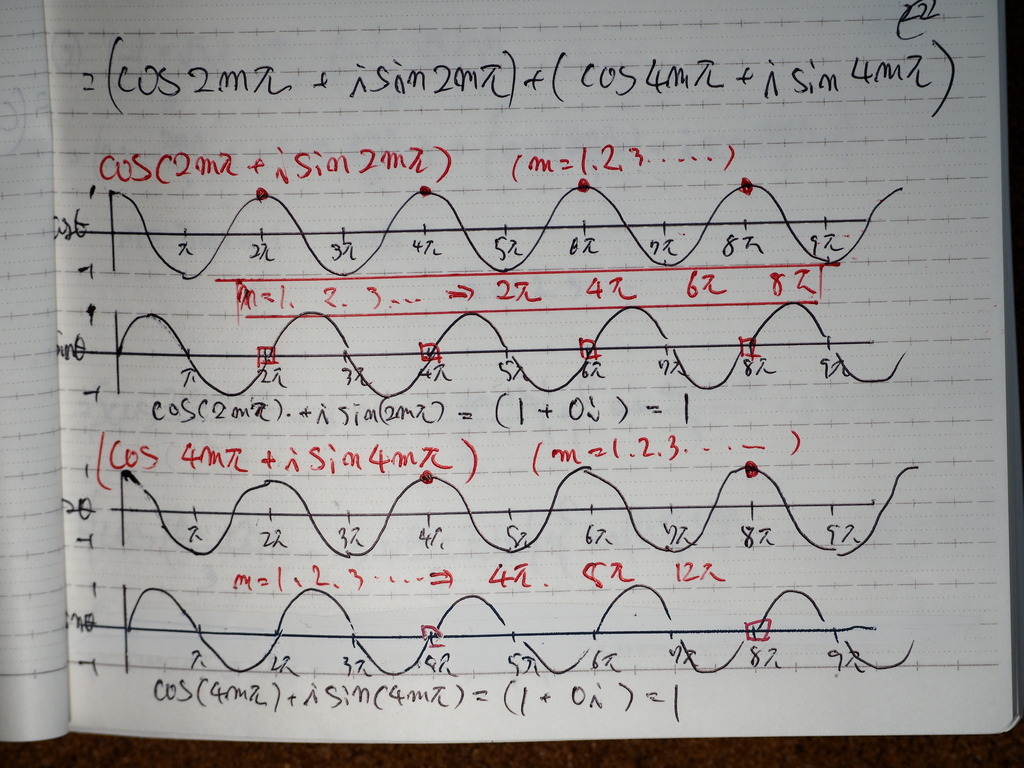 22
= (cos 2mπ + i sin 2mπ) + ( cos 4mπ + i sin 4mπ )
cos(2mπ + i sin 2mπ) (m = 1. 2. 3 ......)
1
π 2π 3π 4π 5π 6π 7π 8π 9π
-1
m = 1. 2. 3 .... ⇒ 2π 4π 6π 8π
1
π 2π 3π 4π 5π 6π 7π 8π 9π
-1
cos(2mπ). + i sin(2mπ) = (1 + 0i) = 1
(cos 4mπ + i sin 4mπ) (m = 1. 2. 3. ....)
1
π 2π 3π 4π 5π 6π 7π 8π 9π
-1
m = 1. 2. 3 ...... ⇒ 4π. 8π 12π
1
π 2π 3π 4π 5π 6π 7π 8π 9π
-1
cos(4mπ) + i sin(4mπ) = (1 + 0i) = 1